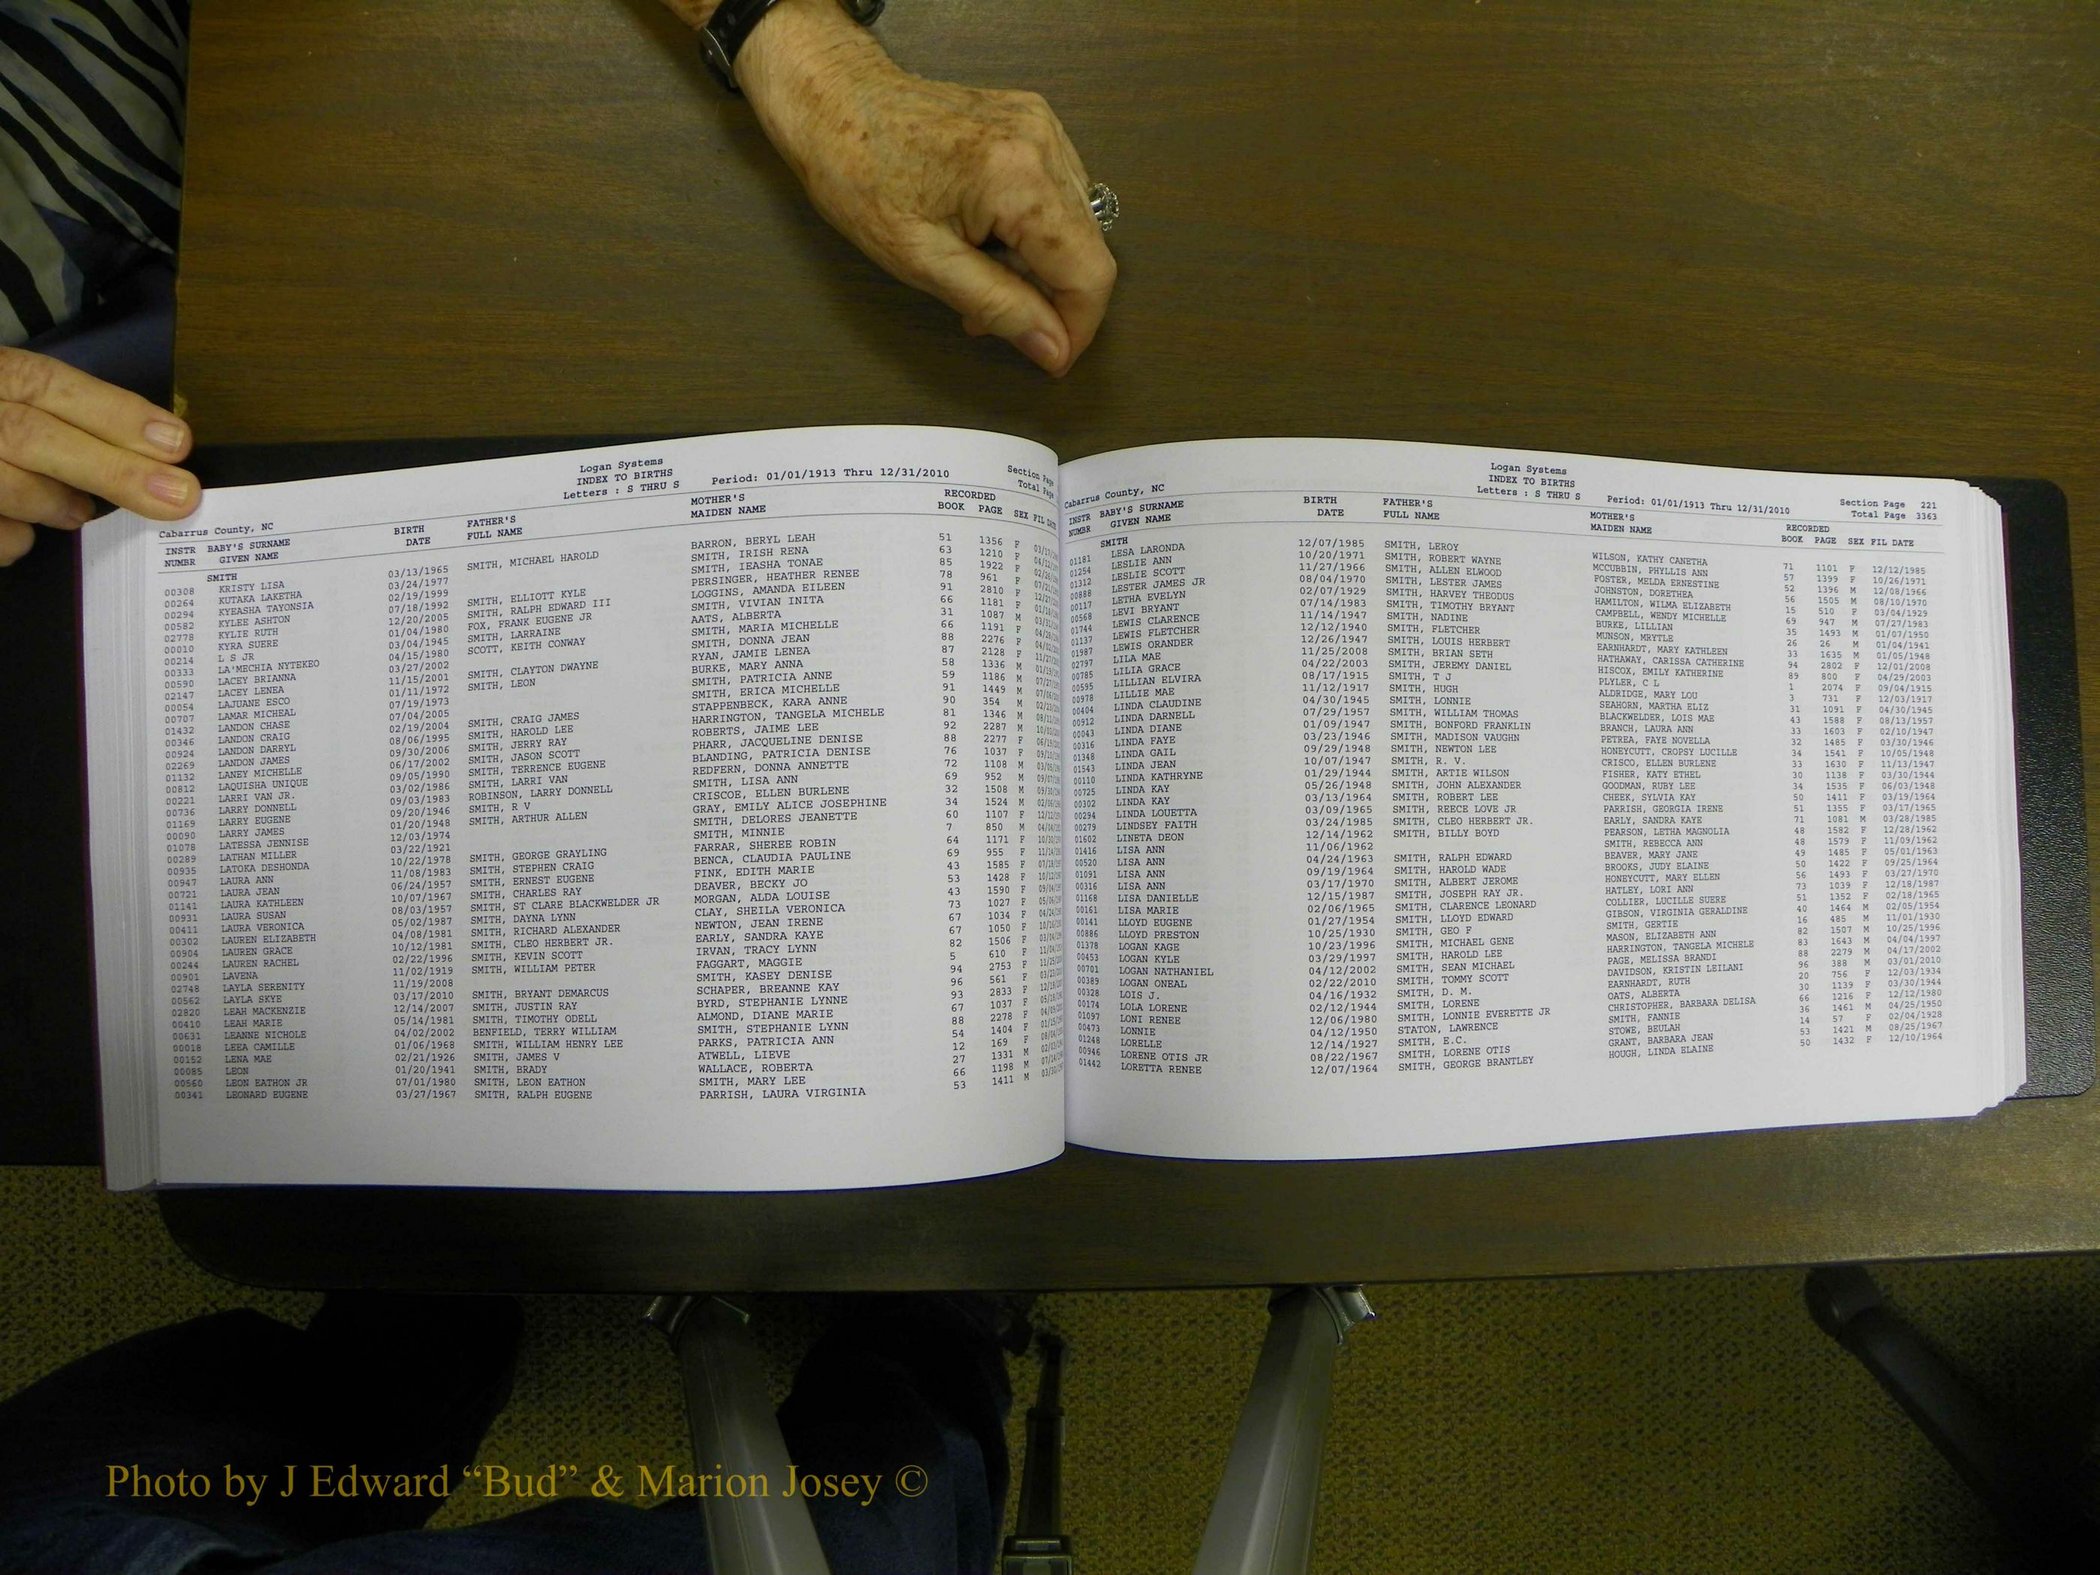 Logan Systems
INDEX TO BIRTHS
Letters : S THRU S Period: 01/01/1913 Thru 12/31/2010 Section Page
Cabarrus County, NC Total Page
INSTR BABY'S SURNAME BIRTH FATHER'S MOTHER'S RECORDED
NUMBR GIVEN NAME DATE FULL NAME MAIDEN NAME BOOK PAGE SEX FIL DATE
SMITH
00308 KRISTY LISA 03/13/1965 SMITH, MICHAEL HAROLD BARRON, BERYL LEAH 51 1356 F
00264 KUTAKA LAKETHA 03/24/1977 SMITH, IRISH RENA 63 1210 F
00294 KYEASHA TAYONSIA 02/19/1999 SMITH, IEASHA TONAE 85 1922 F
00582 KYLEE ASHTON 07/18/1992 SMITH, ELLIOTT KYLE PERSINGER, HEATHER RENEE 78 961 F
02778 KYLIE RUTH 12/20/2005 SMITH, RALPH EDWARD III LOGGINS, AMANDA EILEEN 91 2810 F
00010 KYRA SUERE 01/04/1980 FOX, FRANK EUGENE JR SMITH, VIVIAN INITA 66 1181 F
00214 L S JR 03/04/1945 SMITH, LARRAINE AATS, ALBERTA 31 1087 M
00333 LA'MECHIA NYTEKEO 04/15/1980 SCOTT, KEITH CONWAY SMITH, MARIA MICHELLE 66 1191 F
00590 LACEY BRIANNA 03/27/2002 SMITH, DONNA JEAN 88 2276 F
02147 LACEY LENEA 11/15/2001 SMITH, CLAYTON DWAYNE RYAN, JAMIE LENEA 87 2128 F
00054 LAJUANE ESCO 01/11/1972 SMITH, LEON BURKE, MARY ANNA 58 1336 M
00707 LAMAR MICHEAL 07/19/1973 SMITH, PATRICIA ANNE 59 1186 M
01432 LANDON CHASE 07/04/2005 SMITH, ERICA MICHELLE 91 1449 M
00346 LANDON CRAIG 02/19/2004 SMITH, CRAIG JAMES STAPPENBECK, KARA ANNE 90 354 M
00924 LANDON DARRYL 08/06/1995 SMITH, HAROLD LEE HARRINGTON, TANGELA MICHELE 81 1346 M
02269 LANDON JAMES 09/30/2006 SMITH, JERRY RAY ROBERTS, JAIME LEE 92 2287 M
01132 LANEY MICHELLE 06/17/2002 SMITH, JASON SCOTT PHARR, JACQUELINE DENISE 88 2277 F
00812 LAQUISHA UNIQUE 09/05/1990 SMITH, TERRENCE EUGENE BLANDING, PATRICIA DENISE 76 1037 F
00221 LARRI VAN JR. 03/02/1986 SMITH, LARRI VAN REDFERN, DONNA ANNETTE 72 1108 M
00736 LARRY DONNELL 09/03/1983 ROBINSON, LARRY DONNELL SMITH, LISA ANN 69 952 M
01169 LARRY EUGENE 09/20/1946 SMITH, R V CRISCOE, ELLEN BURLENE 32 1508 M
00090 LARRY JAMES 01/20/1948 SMITH, ARTHUR ALLEN GRAY, EMILY ALICE JOSEPHINE 34 1524 M
01078 LATESSA JENNISE 12/03/1974 SMITH, DELORES JEANETTE 60 1107 F
00289 LATHAN MILLER 03/22/1921 SMITH, MINNIE 7 850 M
00935 LATOKA DESHONDA 10/22/1978 SMITH, GEORGE GRAYLING FARRAR, SHEREE ROBIN 64 1171 F
00947 LAURA ANN 11/08/1983 SMITH, STEPHEN CRAIG BENCA, CLAUDIA PAULINE 69 955 F
00721 LAURA JEAN 06/24/1957 SMITH, ERNEST EUGENE FINK, EDITH MARIE 43 1585 F
01141 LAURA KATHLEEN 10/07/1967 SMITH, CHARLES RAY DEAVER, BECKY JO 53 1428 F
00931 LAURA SUSAN 08/03/1957 SMITH, ST CLARE BLACKWELDER JR MORGAN, ALDA LOUISE 43 1590 F
00411 LAURA VERONICA 05/02/1987 SMITH, DAYNA LYNN CLAY, SHEILA VERONICA 73 1027 F
00302 LAUREN ELIZABETH 04/08/1981 SMITH, RICHARD ALEXANDER NEWTON, JEAN IRENE 67 1034 F
00904 LAUREN GRACE 10/12/1981 SMITH, CLEO HERBERT JR. EARLY, SANDRA KAYE 67 1050 F
00244 LAUREN RACHEL 02/22/1996 SMITH, KEVIN SCOTT IRVAN, TRACY LYNN 82 1506 F
00901 LAVENA 11/02/1919 SMITH, WILLIAM PETER FAGGART, MAGGIE 5 610 F
02748 LAYLA SERENITY 11/19/2008 SMITH, KASEY DENISE 94 2753 F
00562 LAYLA SKYE 03/17/2010 SMITH, BRYANT DEMARCUS SCHAPER, BREANNE KAY 96 561 F
02820 LEAH MACKENZIE 12/14/2007 SMITH, JUSTIN RAY BYRD, STEPHANIE LYNNE 93 2833 F
00410 LEAH MARIE 05/14/1981 SMITH, TIMOTHY ODELL ALMOND, DIANE MARIE 67 1037 F
00631 LEANNE NICHOLE 04/02/2002 BENFIELD, TERRY WILLIAM SMITH, STEPHANIE LYNN 88 2278 F
00018 LEEA CAMILLE 01/06/1968 SMITH, WILLIAM HENRY LEE PARKS, PATRICIA ANN 54 1404 F
00152 LENA MAE 02/21/1926 SMITH, JAMES V ATWELL, LIEVE 12 169 F
00085 LEON 01/20/1941 SMITH, BRADY WALLACE, ROBERTA 27 1331 M
00560 LEON EATHON JR 07/01/1980 SMITH, LEON EATHON SMITH, MARY LEE 66 1198 M
00341 LEONARD EUGENE 03/27/1967 SMITH, RALPH EUGENE PARRISH, LAURA VIRGINIA 53 1411 M
Logan Systems
INDEX TO BIRTHS
Letters : S THRU S Period: 01/01/1913 Thru 12/31/2010 Section Page 221
Cabarrus County, NC Total Page 3363
INSTR BABY'S SURNAME BIRTH FATHER'S MOTHER'S RECORDED
NUMBR GIVEN NAME DATE FULL NAME MAIDEN NAME BOOK PAGE SEX FIL DATE
SMITH
01181 LESA LARONDA 12/07/1985 SMITH, LEROY WILSON, KATHY CANETHA 71 1101 F 12/12/1985
01254 LESLIE ANN 10/20/1971 SMITH, ROBERT WAYNE MCCUBBIN, PHYLLIS ANN 57 1399 F 10/26/1971
01312 LESLIE SCOTT 11/27/1966 SMITH, ALLEN ELWOOD FOSTER, MELDA ERNESTINE 52 1396 M 12/08/1966
00888 LESTER JAMES JR 08/04/1970 SMITH, LESTER JAMES JOHNSTON, DORETHEA 56 1505 M 08/10/1970
00117 LETHA EVELYN 02/07/1929 SMITH, HARVEY THEODUS HAMILTON, WILMA ELIZABETH 15 510 F 03/04/1929
00568 LEVI BRYANT 07/14/1983 SMITH, TIMOTHY BRYANT CAMPBELL, WENDY MICHELLE 69 947 M 07/27/1983
01744 LEWIS CLARENCE 11/14/1947 SMITH, NADINE BURKE, LILLIAN 35 1493 M 01/07/1950
01137 LEWIS FLETCHER 12/12/1940 SMITH, FLETCHER MUNSON, MRYTLE 26 26 M 01/04/1941
01987 LEWIS ORANDER 12/26/1947 SMITH, LOUIS HERBERT EARNHARDT, MARY KATHLEEN 33 1635 M 01/05/1948
02797 LILA MAE 11/25/2008 SMITH, BRIAN SETH HATHAWAY, CARISSA CATHERINE 94 2802 F 12/01/2008
00785 LILIA GRACE 04/22/2003 SMITH, JEREMY DANIEL HISCOX, EMILY KATHERINE 89 800 F 04/29/2003
00595 LILLIAN ELVIRA 08/17/1915 SMITH, T J PLYLER, C L 1 2074 F 09/04/1915
00978 LILLIE MAE 11/12/1917 SMITH, HUGH ALDRIDGE, MARY LOU 3 731 F 12/03/1917
00404 LINDA CLAUDINE 04/30/1945 SMITH, LONNIE SEAHORN, MARTHA ELIZ 31 1091 F 04/30/1945
00912 LINDA DARNELL 07/29/1957 SMITH, WILLIAM THOMAS BLACKWELDER, LOIS MAE 43 1588 F 08/13/1957
00043 LINDA DIANE 01/09/1947 SMITH, BONFORD FRANKLIN BRANCH, LAURA ANN 33 1603 F 02/10/1947
00316 LINDA FAYE 03/23/1946 SMITH, MADISON VAUGHN PETREA, FAYE NOVELLA 32 1485 F 03/30/1946
01348 LINDA GAIL 09/29/1948 SMITH, NEWTON LEE HONEYCUTT, CROPSY LUCILLE 34 1541 F 10/05/1948
01543 LINDA JEAN 10/07/1947 SMITH, R. V. CRISCO, ELLEN BURLENE 33 1630 F 11/13/1947
00110 LINDA KATHRYNE 01/29/1944 SMITH, ARTIE WILSON FISHER, KATY ETHEL 30 1138 F 03/30/1944
00725 LINDA KAY 05/26/1948 SMITH, JOHN ALEXANDER GOODMAN, RUBY LEE 34 1535 F 06/03/1948
00302 LINDA KAY 03/13/1964 SMITH, ROBERT LEE CHEEK, SYLVIA KAY 50 1411 F 03/19/1964
00294 LINDA LOUETTA 03/09/1965 SMITH, REECE LOVE JR PARRISH, GEORGIA IRENE 51 1355 F 03/17/1965
00279 LINDSEY FAITH 03/24/1985 SMITH, CLEO HERBERT JR. EARLY, SANDRA KAYE 71 1081 M 03/28/1985
01602 LINETA DEON 12/14/1962 SMITH, BILLY BOYD PEARSON, LETHA MAGNOLIA 48 1582 F 12/28/1962
01416 LISA ANN 11/06/1962 SMITH, REBECCA ANN 48 1579 F 11/09/1962
00520 LISA ANN 04/24/1963 SMITH, RALPH EDWARD BEAVER, MARY JANE 49 1485 F 05/01/1963
01091 LISA ANN 09/19/1964 SMITH, HAROLD WADE BROOKS, JUDY ELAINE 50 1422 F 09/25/1964
00316 LISA ANN 03/17/1970 SMITH, ALBERT JEROME HONEYCUTT, MARY ELLEN 56 1493 F 03/27/1970
01168 LISA DANIELLE 12/15/1987 SMITH, JOSEPH RAY JR. HATLEY, LORI ANN 73 1039 F 12/18/1987
00161 LISA MARIE 02/06/1965 SMITH, CLARENCE LEONARD COLLIER, LUCILLE SUERE 51 1352 F 02/18/1965
00141 LLOYD EUGENE 01/27/1954 SMITH, LLOYD EDWARD GIBSON, VIRGINIA GERALDINE 40 1464 M 02/05/1954
00886 LLOYD PRESTON 10/25/1930 SMITH, GEO F SMITH, GERTIE 16 485 M 11/01/1930
01378 LOGAN KAGE 10/23/1996 SMITH, MICHAEL GENE MASON, ELIZABETH ANN 82 1507 M 10/25/1996
00453 LOGAN KYLE 03/29/1997 SMITH, HAROLD LEE HARRINGTON, TANGELA MICHELE 83 1643 M 04/04/1997
00701 LOGAN NATHANIEL 04/12/2002 SMITH, SEAN MICHAEL PAGE, MELISSA BRANDI 88 2279 M 04/17/2002
00389 LOGAN ONEAL 02/22/2010 SMITH, TOMMY SCOTT DAVIDSON, KRISTIN LEILANI 96 388 M 03/01/2010
00328 LOIS J. 04/16/1932 SMITH, D. M. EARNHARDT, RUTH 20 756 F 12/03/1934
00174 LOLA LORENE 02/12/1944 SMITH, LORENE OATS, ALBERTA 30 1139 F 03/30/1944
01097 LONI RENEE 12/06/1980 SMITH, LONNIE EVERETTE JR CHRISTOPHER, BARBARA DELISA 66 1216 F 12/12/1980
00473 LONNIE 04/12/1950 STATON, LAWRENCE SMITH, FANNIE 36 1461 M 04/25/1950
01248 LORELLE 12/14/1927 SMITH, E.C. STOWE, BEULAH 14 57 F 02/04/1928
00946 LORENE OTIS JR 08/22/1967 SMITH, LORENE OTIS GRANT, BARBARA JEAN 53 1421 M 08/25/1967
01442 LORETTA RENEE 12/07/1964 SMITH, GEORGE BRANTLEY HOUGH, LINDA ELAINE 50 1432 F 12/10/1964
Photo by J Edward “Bud” & Marion Josey ©